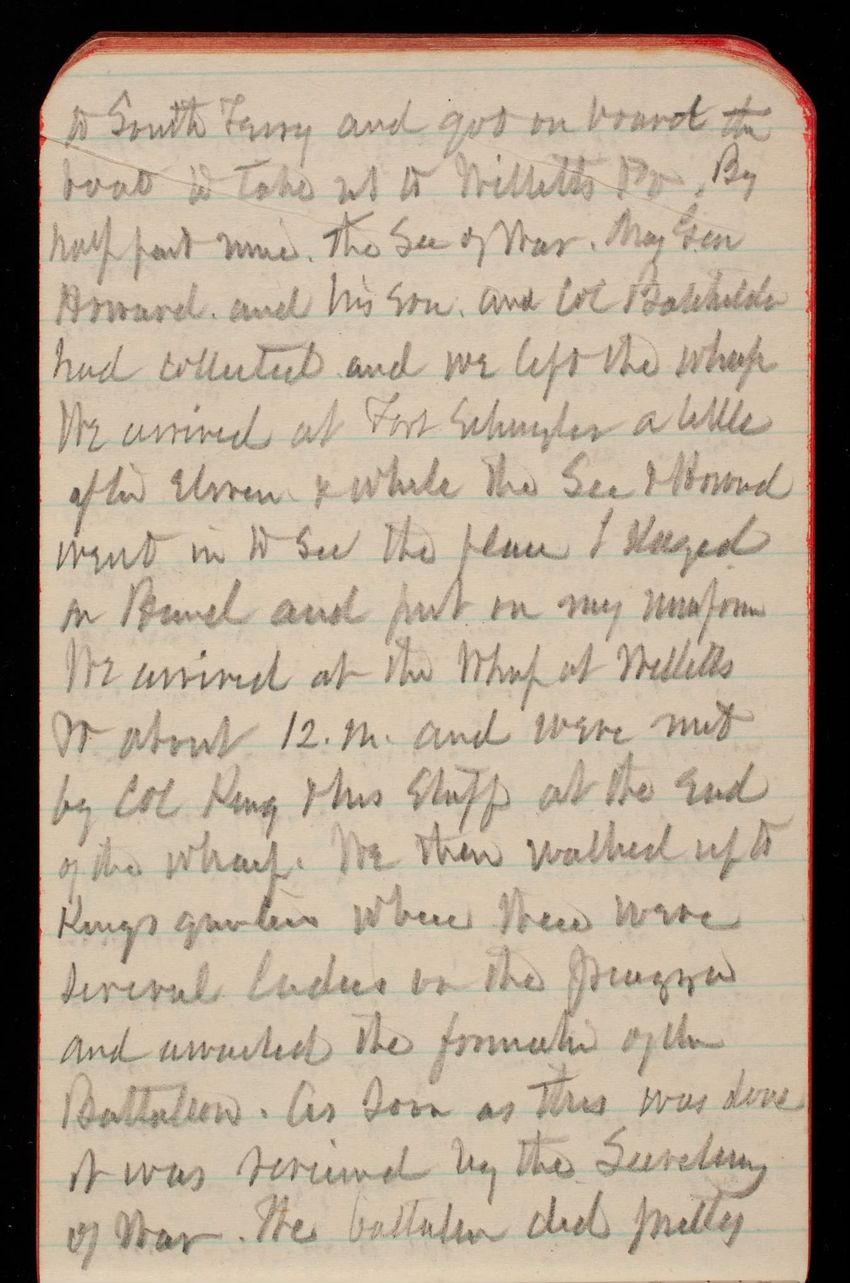 to South Ferry and got on board the
boat to take us to Willetts Pt. By
half past nine. The Sec of War. Maj Gen
Howard. and his son. and Col Batchelder
had collected and we left the wharf
We arrived at Fort Schuyler a little
after Eleven & while the Sec & Howard
went in to see the place I stayed
on Board and put on my uniform
We arrived at the Wharf at Willetts
Pt about 12. M. and were met
by Col King & his Staff at the End
of the wharf. We then walked up to
Kings quarters where there were
several ladies on the piazza
and awaited the formatin of the
Battalion. As soon as this was done
it was reviewed by the Secretary
of War. The battalion did pretty